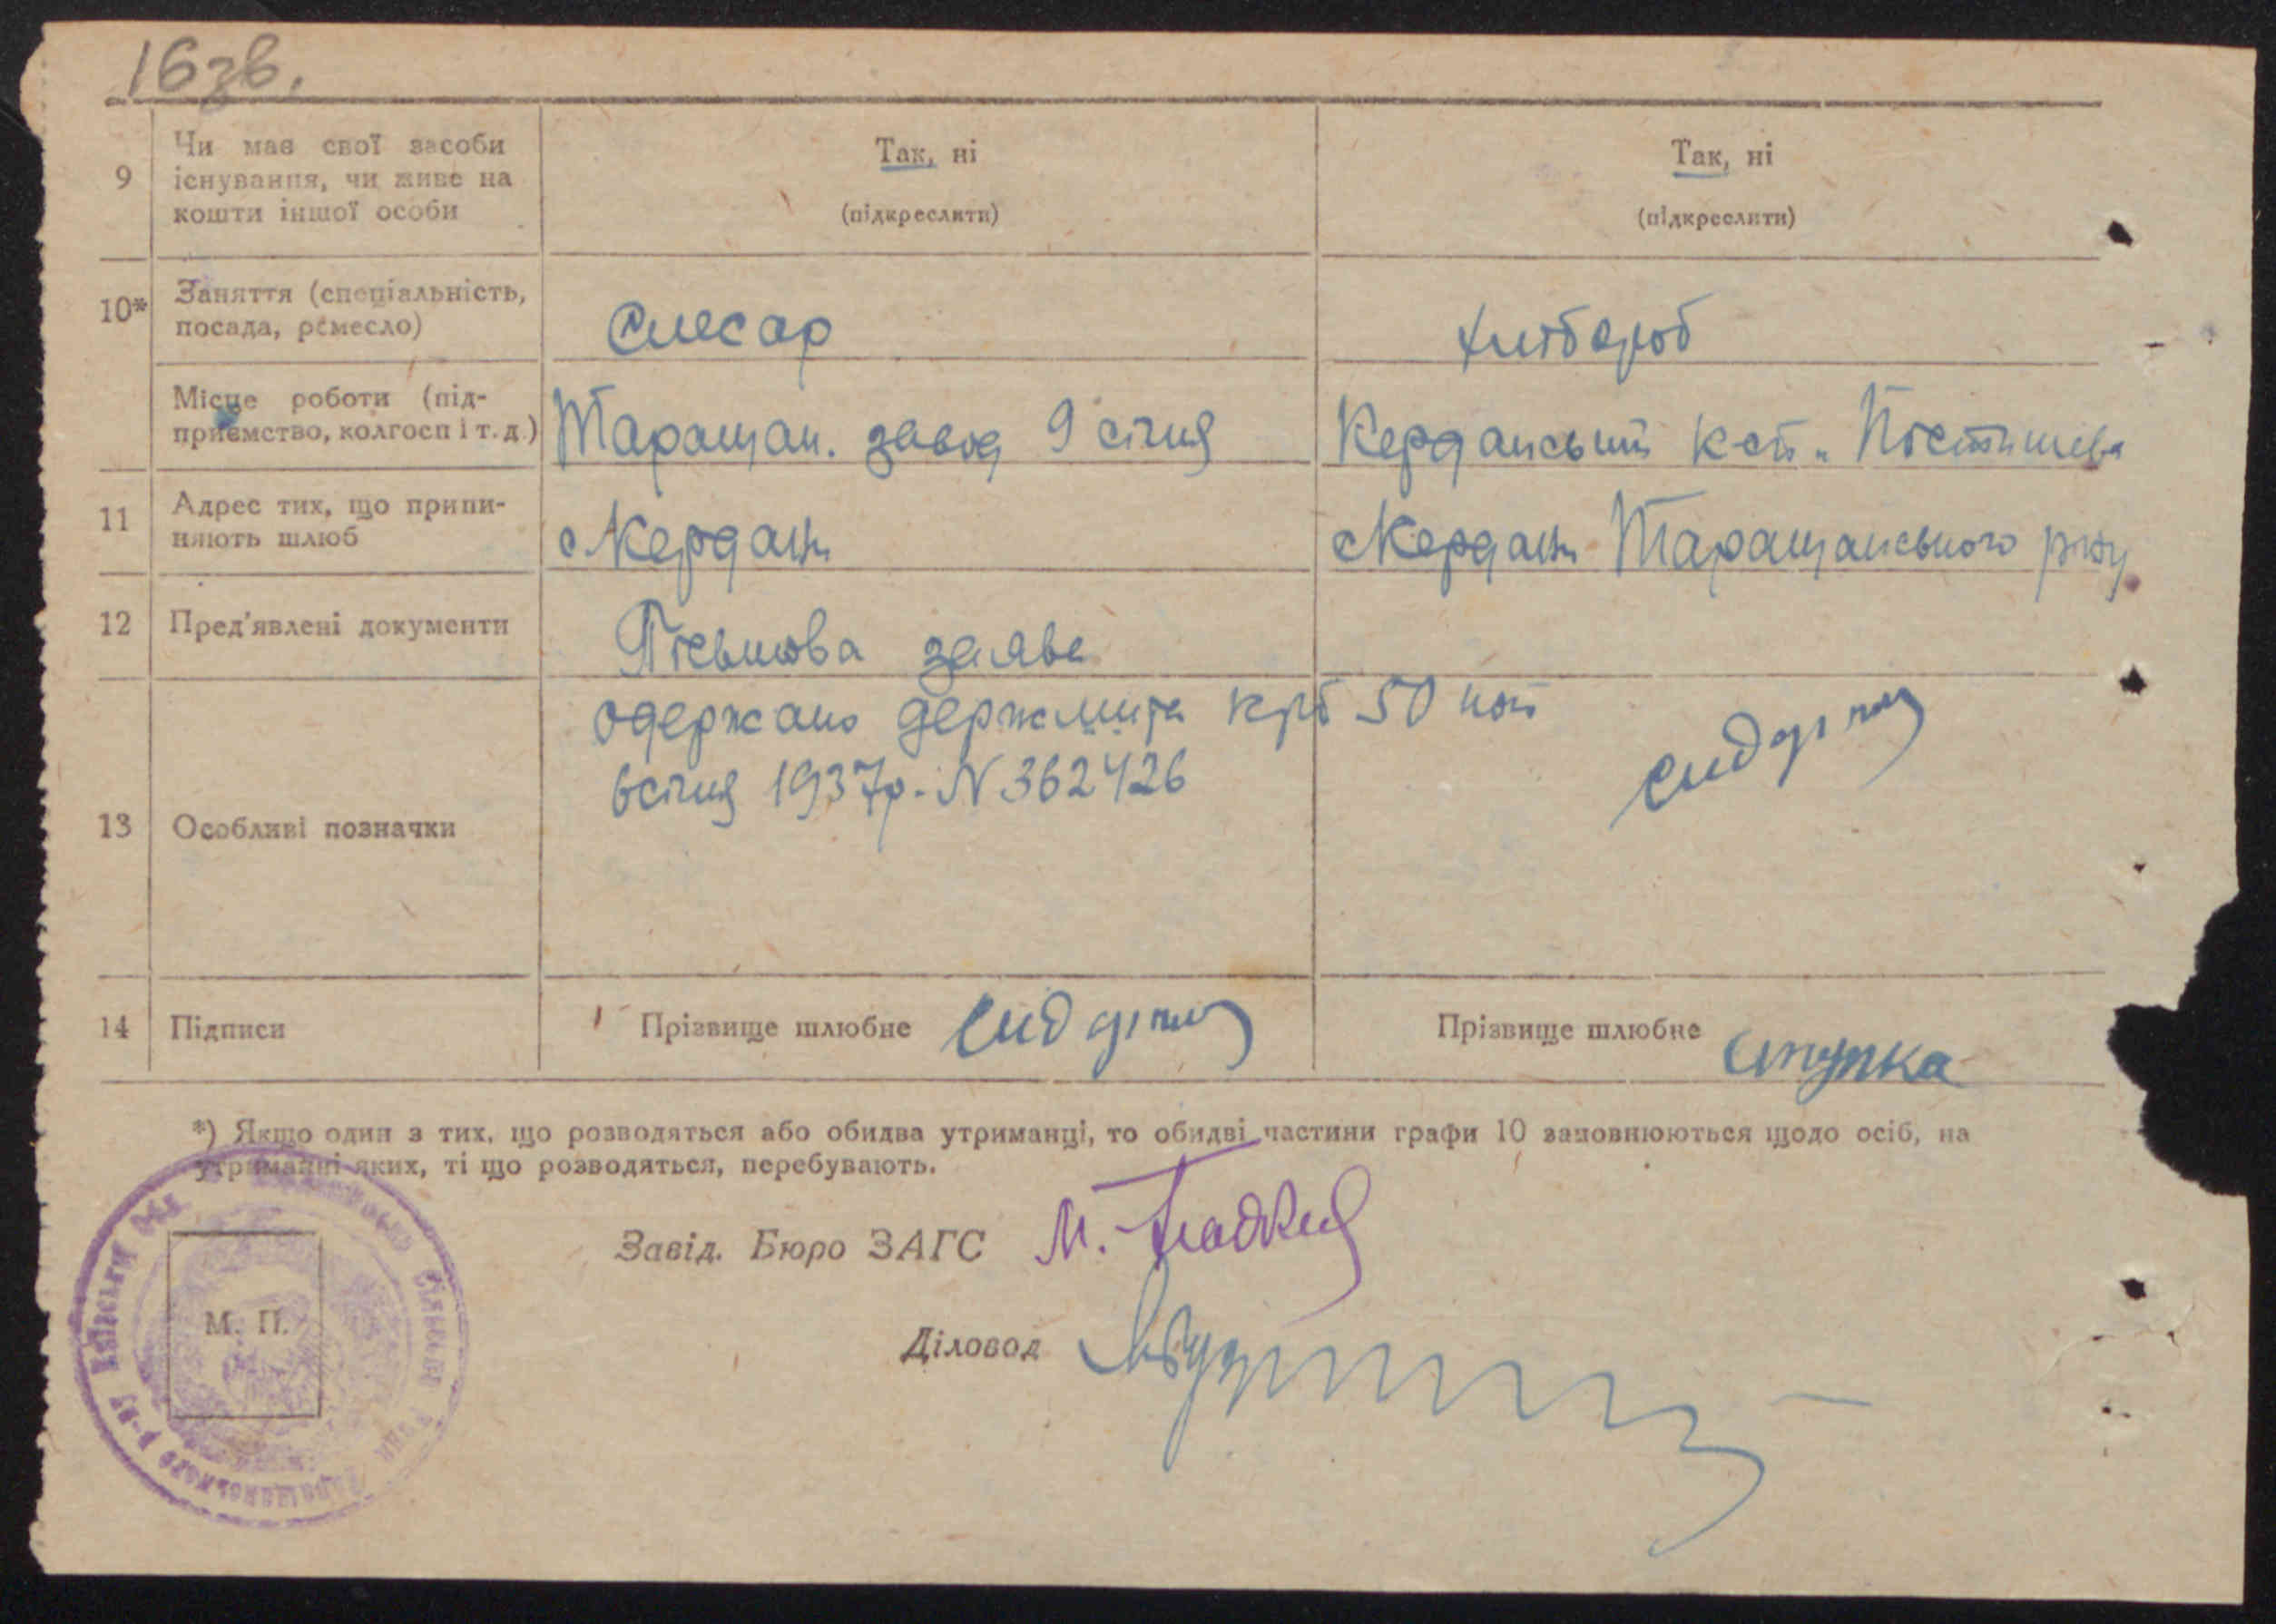 16 зв.
9 Чи має свої засоби Так, ні Так, ні
існування, чи живе на
кошти іншої особи (підкреслити) (підкреслити)
10* Заняття (спеціальність,
посада, ремесло) Слесар хлібороб
Місце роботи (під-
приємство, колгосп і т. д.) Таращан. завод 9 січня Керданський к-сп. Постишева
11 Адрес тих, що припи-
няють шлюб с Кердани с Кердани Таращанського р-ну
12 Пред'явлені документи Пісьмова заява
одержано держмита крб 50 коп
13 Особливі позначки 6 січня 1937 р. N 362426
14 Підписи Прізвище шлюбне Прізвище шлюбне Ступка
*) Якщо один з тих, що розводяться або обидва утриманці, то обидві частини графи 10 заповнюються щодо осіб, на
утриманні яких, ті що розводяться, перебувають.
Завід. Бюро ЗАГС М.
М. П.
Діловод
Сільської Ради Таращанського р-ну Київської Обл.